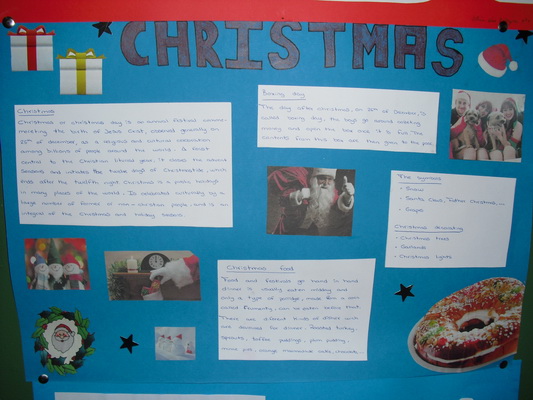 CHRISTMAS
Christmas
Christmas or christmas day is an annual festival commem-
morating the birth of Jesus Crist, observed generally on
25th of december, as a religious and cultural celebration
among billions of people around the world. A feast
central to the Christian liturgical year, it closes the advent
Seasons and initiates the twelve days of Christmastide, which
ends after the twelfth night Christmas is a public holidays
in many places of the world. Is celebrated culturally by a
large number of non-christian people, and is an
integral of the Christmas and holiday season.
Boxing day
The day after christmas, on 26th of December, is
called boxing day, the boys go around collecting
money and open the box and is full. The
contents from this box are then given to the poor.
The symbols
- Snow
- Santa Claus, Father christmas, ...
- Gospel
Christmas decorating
- Christmas trees
- Garlands
- Christmas lights
Christmas food
Food and festivals go hand in hand
dinner is usually eaten midday and
only a type of porridge, made from a corn
called Frumenty, can be eaten before that
There are diferent kinds of dishes wich
are devoured for dinner. Roasted turkey,
sprouts, toffee puddings, plum pudding,
mince pies, orange